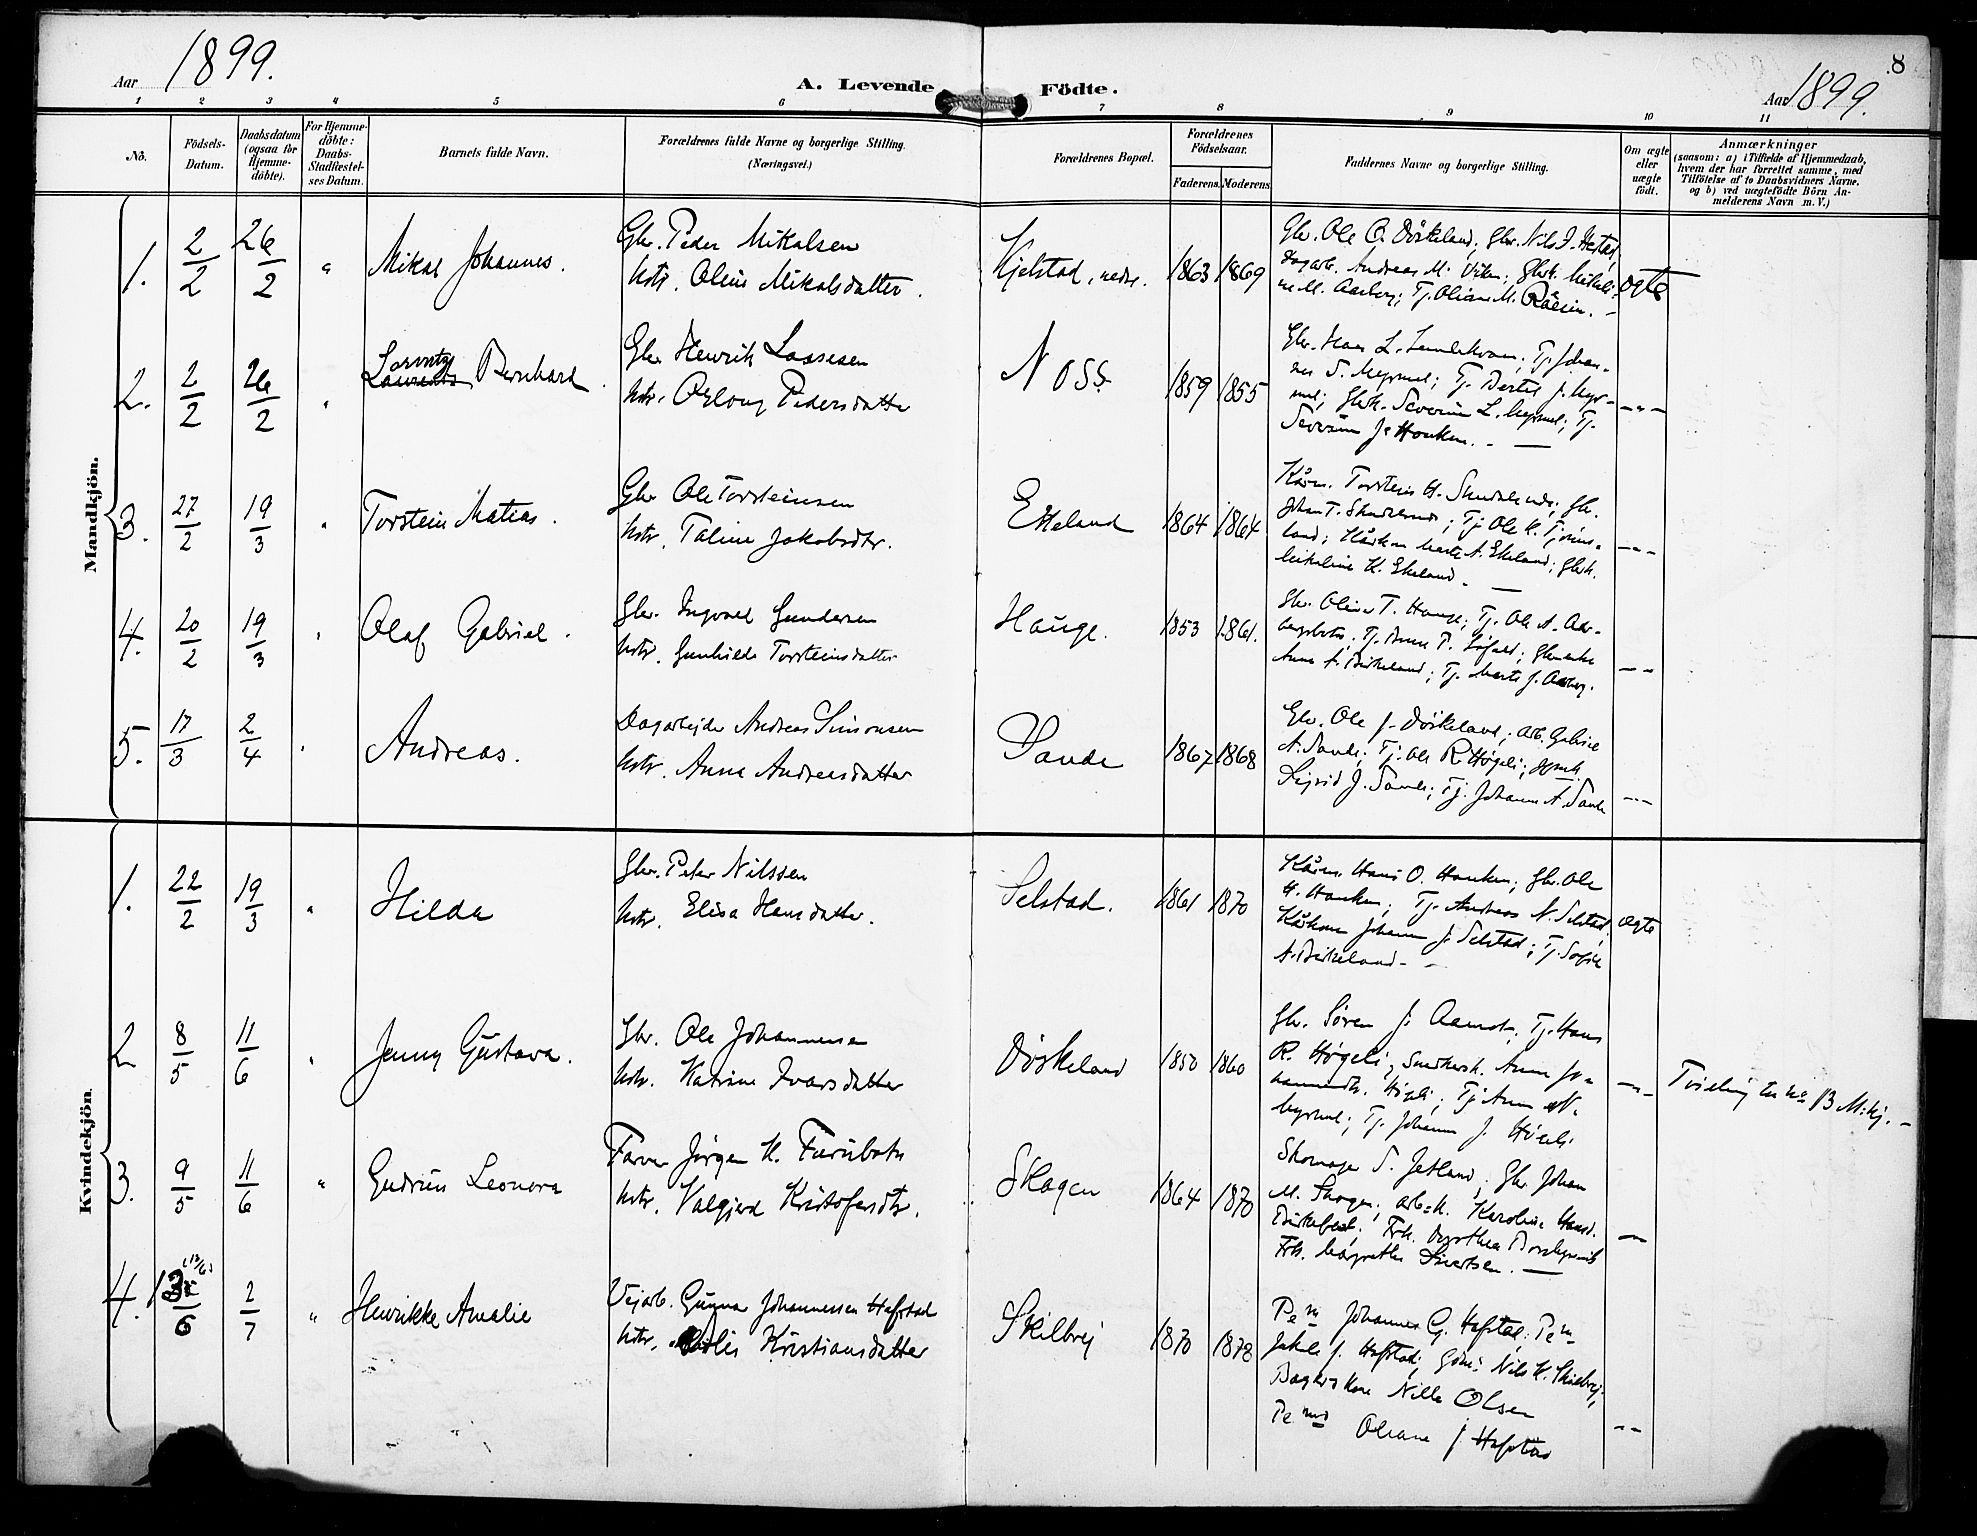 Aar 1899.
A. Levende Födte.
8
Aar 1899.
1 2 3 4 5 6 7 8 9 10 11
Nö.
Födsels-Datum.
Daabsdatum (ogsaa for Hjemme-döbte).
For Hjemme-döbte: Daabs-Stadfæstel-ses Datum.
Barnets fulde Navn.
Forældrenes fulde Navne og borgerlige Stilling. (Næringsvei.)
Forældrenes Bopæl.
Forældrenes Födselsaar.
Faderens. Moderens.
Faddernes Navne og borgerlige Stilling.
Om ægte eller uægte födt.
Anmærkninger
(saasom: a) i Tilfælde af Hjemmedaab, hvem der har forrettet samme, med Tilföielse af to Daabsvidners Navne. og b) ved uægtefödte Börn An-melderens Navn m. V.)
Mandkjön.
1. 2/2 26/2 " Mikal Johannes.
Gbr. Peder Mikalsen
hstr. Oline Mikalsdatter.
Kjelstad, nedr. 1863 1869
Gbr. Ole O. Birkeland; Gbr. Nils
Dagarb. Andreas M. Viken; Gbrk.
M. Aarberg; Tj. Oliane M. ægte
2. 2/2 26/2 " Lorentz Bernhard.
Gbr. Henrik Lassesen
hstr. Pedersdatter
Noss 1859 1855
Gbr. Hans L. Tj. Johan-
nes S. Myrmel; Tj. Bertel J. Myr-
mel; Gbrk. Severine L. Myrmel; Tj.
Severine J. Hauken. —
3. 27/2 19/3 " Torstein Matias.
Gbr. Ole Torsteinsen
hstr. Taline Jakobsdtr.
Ekeland 1864 1864
Kårm. Torstein H. Gbr.
Johan T. Tj. Ole K.
land; Kårkone Marte A. Ekeland; Gbrk.
Mikaline K. Ekeland. —
4. 20/2 19/3 " Olaf Gabriel.
Gbr. Ingvald Gundersen
hstr. Gunhilde Torsteinsdatter
Hauge. 1853 1861.
Gbr. Oliver T. Hauge; Tj. Ole A. Aar-
Tj. P.
Anne A. Birkeland; Tj. Marte J. Aarberg.
5. 17/3 2/4 " Andreas.
Dagarbejder Andreas Simonsen
hstr. Anna Andreasdatter
Sande 1867 1868
Gbr. Ole J. Birkeland; Arb. Gabriel
A. Sande; Tj. Ole R. Høgeli;
Sigrid J. Sande; Tj. Johanne A. Sande
Kvindekjön.
1. 22/2 19/3 " Hilda
Gbr. Peter Nilssen
hstr. Elisa Hansdatter.
Selstad. 1861 1870
Kårm. Hans O. Hauken; Gbr. Ole
H. Hauken; Tj. Andreas N. Selstad; ægte
Kårkone Johanne J. Selstad; Tj. Sofie
A. Birkeland —
2 8/5 11/6 " Jenny Gustava.
Gbr. Ole Johannessen
hstr. Katrine Ivarsdatter
Birkeland 1850 1860
Gbr. Søren J. Aamot; Tj. Hans
R. Høgeli; Snedkersk. Anne Jo-
hannesdtr. Høgeli; Tj. Anne N.
Myrmel; Tj. Johanne J. Høgeli
Tvilling til No 13 M.kj. —
3. 9/5 11/6 " Gudrun Leonora
Farver Jørgen K. Furubotn
hstr. Valgjerd Kristofersdtr.
Skagen 1864 1870
Skomager S. Jetland; Gbr. Johan
M. Skogen; arb.k. Karoline Hansd.
Frk. Dorthea
Frk. Margrethe Sivertsen. —
4. 13/6 (13/6) 2/7 " Henrikke Amalie
Vejarb. Gunnar Johannessen Hafstad
hstr. Kristiansdatter
Skilbrej 1870 1878
Pem Johannes G. Hafstad; Pem
Jakob J. Hafstad; Gdm. Nils K. Skilbrej;
Bagerskone Nille Olsen
Oliane J. Hafstad